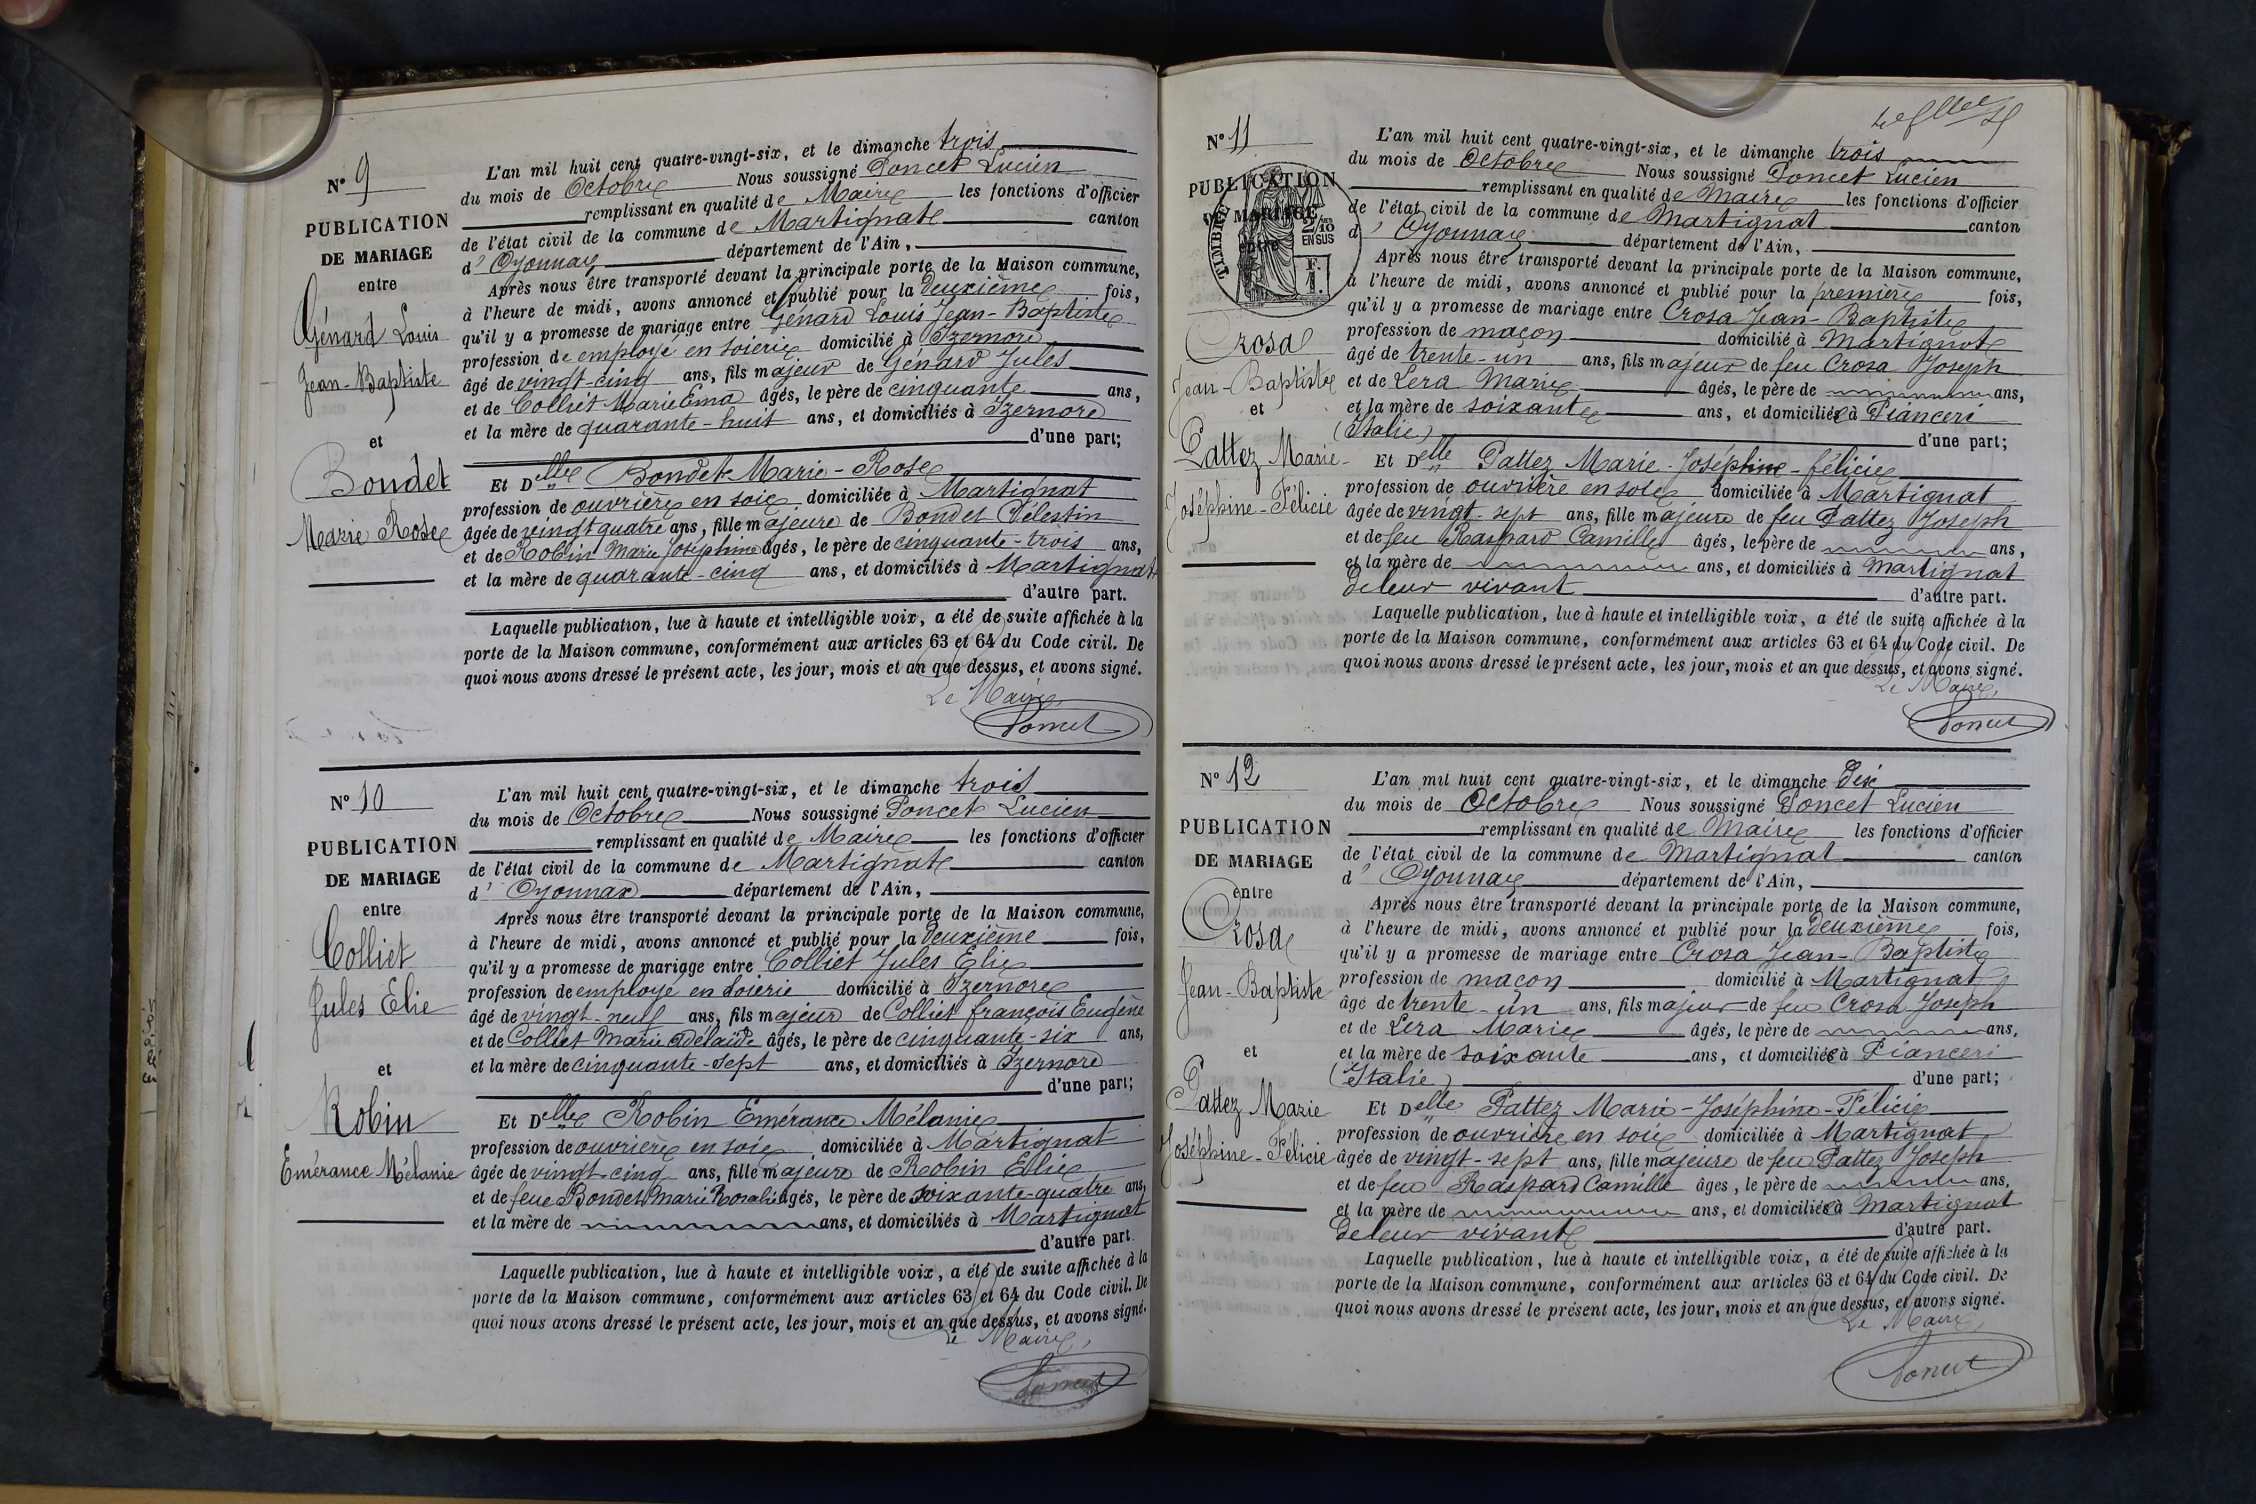 N° 9
PUBLICATION
DE MARIAGE
entre
Génard Louis
Jean-Baptiste
et
Bondet
Marie Rose
L'an mil huit cent quatre-vingt-six, et le dimanche trois
du mois de Octobre Nous soussigné Poncet Lucien
remplissant en qualité de Maire les fonctions d'officier
de l'état civil de la commune de Martignat canton
d'Oyonnax département de l'Ain,
Après nous être transporté devant la principale porte de la Maison commune,
à l'heure de midi, avons annoncé et publié pour la deuxième fois,
qu'il y a promesse de mariage entre Génard Louis Jean-Baptiste
profession de employé en soierie domicilié à Izernore
âgé de vingt-cinq ans, fils majeur de Génard Jules
et de Colliet Marie Ema âgés, le père de cinquante ans,
et la mère de quarante-huit ans, et domiciliés à Izernore
d'une part;
Et Delle Bondet Marie-Rose
profession de ouvrière en soie domiciliée à Martignat
âgée de vingt quatre ans, fille majeure de Bondet Célestin
et de Robin Marie Joséphine âgés, le père de cinquante-trois ans,
et la mère de quarante-cinq ans, et domiciliés à Martignat
d'autre part.
Laquelle publication, lue à haute et intelligible voix, a été de suite affichée à la
porte de la Maison commune, conformément aux articles 63 et 64 du Code civil. De
quoi nous avons dressé le présent acte, les jour, mois et an que dessus, et avons signé.
Le Maire,
Poncet
N° 10
PUBLICATION
DE MARIAGE
entre
Colliet
Jules Elie
et
Robin
Emérance Mélanie
L'an mil huit cent quatre-vingt-six, et le dimanche trois
du mois de Octobre Nous soussigné Poncet Lucien
remplissant en qualité de Maire les fonctions d'officier
de l'état civil de la commune de Martignat canton
d'Oyonnax département de l'Ain,
Après nous être transporté devant la principale porte de la Maison commune,
à l'heure de midi, avons annoncé et publié pour la deuxième fois,
qu'il y a promesse de mariage entre Colliet Jules Elie
profession de employé en soierie domicilié à Izernore
âgé de vingt-neuf ans, fils majeur de Colliet françois Eugène
et de Colliet Marie Adélaïde âgés, le père de cinquante-six ans,
et la mère de cinquante-sept ans, et domiciliés à Izernore
d'une part;
Et Delle Robin Emérance Mélanie
profession de ouvrière en soie, domiciliée à Martignat
âgée de vingt-cinq ans, fille majeure de Robin Elie
et de feue Bondet Marie Rosalie âgés, le père de soixante-quatre ans,
et la mère de ans, et domiciliés à Martignat
d'autre part.
Laquelle publication, lue à haute et intelligible voix, a été de suite affichée à la
porte de la Maison commune, conformément aux articles 63 et 64 du Code civil. De
quoi nous avons dressé le présent acte, les jour, mois et an que dessus, et avons signé.
Le Maire,
Poncet
N° 11
PUBLICATION
DE MARIAGE
entre
TIMBRE
2/10
EN SUS
F.
1.
Crosa
Jean-Baptiste
et
Pattez Marie-
Joséphine-Félicie
L'an mil huit cent quatre-vingt-six, et le dimanche trois
du mois de Octobre Nous soussigné Poncet Lucien
remplissant en qualité de Maire les fonctions d'officier
de l'état civil de la commune de Martignat canton
d'Oyonnax département de l'Ain,
Après nous être transporté devant la principale porte de la Maison commune,
à l'heure de midi, avons annoncé et publié pour la première fois,
qu'il y a promesse de mariage entre Crosa Jean-Baptiste
profession de maçon domicilié à Martignat
âgé de trente-un ans, fils majeur de feu Crosa Joseph
et de Lera Marie âgés, le père de ans,
et la mère de soixante ans, et domiciliée à Pianceri
(Italie) d'une part;
Et Delle Pattez Marie-Joséphine-félicie
profession de ouvrière en soie domiciliée à Martignat
âgée de vingt-sept ans, fille majeure de feu Pattez Joseph
et de feu Raspard Camille âgés, le père de ans,
et la mère de ans, et domiciliés à Martignat
de leur vivant d'autre part.
Laquelle publication, lue à haute et intelligible voix, a été de suite affichée à la
porte de la Maison commune, conformément aux articles 63 et 64 du Code civil. De
quoi nous avons dressé le présent acte, les jour, mois et an que dessus, et avons signé.
Le Maire,
Poncet
N° 12
PUBLICATION
DE MARIAGE
entre
Crosa
Jean-Baptiste
et
Pattez Marie
Joséphine-Félicie
L'an mil huit cent quatre-vingt-six, et le dimanche Dix
du mois de Octobre Nous soussigné Poncet Lucien
remplissant en qualité de Maire les fonctions d'officier
de l'état civil de la commune de Martignat canton
d'Oyonnax département de l'Ain,
Après nous être transporté devant la principale porte de la Maison commune,
à l'heure de midi, avons annoncé et publié pour la deuxième fois,
qu'il y a promesse de mariage entre Crosa Jean-Baptiste
profession de maçon domicilié à Martignat
âgé de trente-un ans, fils majeur de feu Crosa Joseph
et de Lera Marie âgés, le père de ans,
et la mère de soixante ans, et domiciliée à Pianceri
(Italie) d'une part;
Et Delle Pattez Marie-Joséphine-Félicie
profession de ouvrière en soie domiciliée à Martignat
âgée de vingt-sept ans, fille majeure de feu Pattez Joseph
et de feu Raspard Camille âgés, le père de ans,
et la mère de ans, et domiciliés à Martignat
de leur vivant d'autre part.
Laquelle publication, lue à haute et intelligible voix, a été de suite affichée à la
porte de la Maison commune, conformément aux articles 63 et 64 du Code civil. De
quoi nous avons dressé le présent acte, les jour, mois et an que dessus, et avons signé.
Le Maire,
Poncet